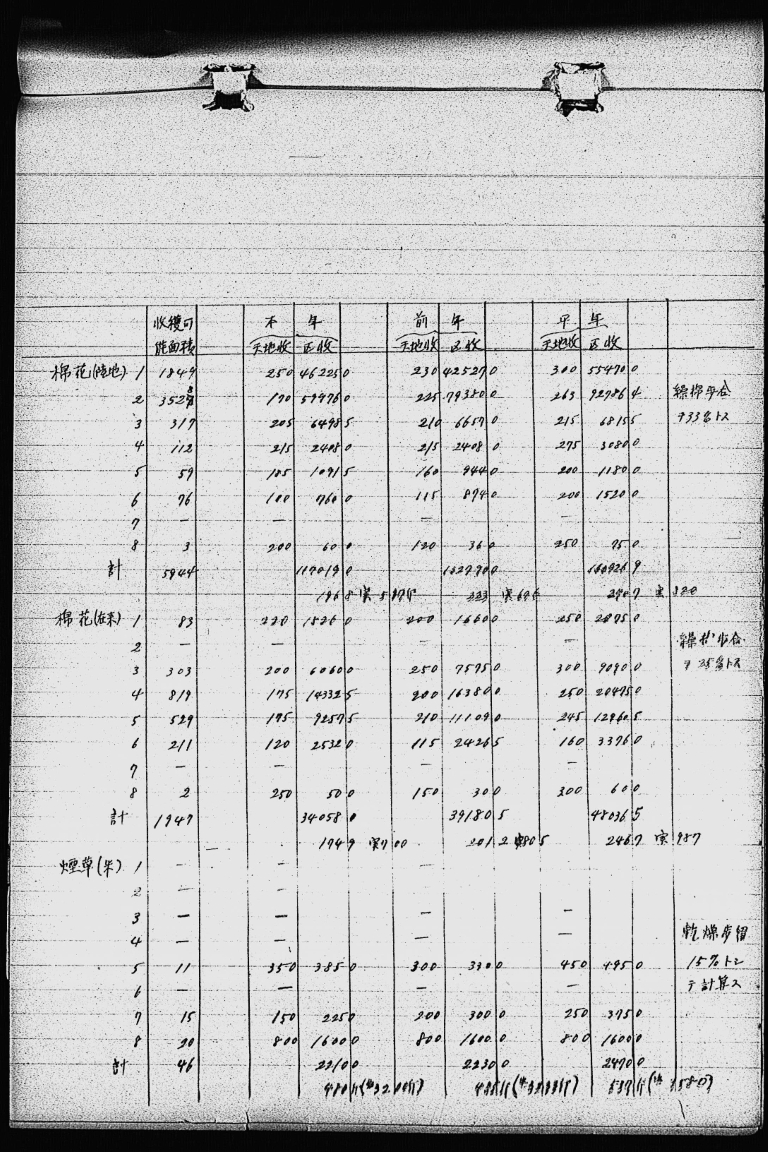 收穫可 本 年 前 年 平 年
能面積 天地收 区收 天地收 区收 天地收 区收
棉花(陸地) 1 1849 250 462250 230 425270 300 554700
2 3528 170 599760 225 793800 263 927864 繰棉步合
3 317 205 64985 210 66570 215 68155 ヲ33%トス
4 112 215 24080 215 24080 275 30800
5 59 185 10915 160 9440 200 11800
6 76 100 7600 115 8740 200 15200
7 — — — —
8 3 200 600 120 360 250 750
計 5944 1170190
1968 実 223 実 2707 実
棉花(在来) 1 83 220 18260 200 16600 250 20750
2 — — — — 繰棉步合
3 303 200 60600 250 75750 300 90900 ヲ25%トス
4 819 175 143325 200 163800 250 204750
5 529 175 92575 210 111090 245 129605
6 211 120 25320 115 24265 160 33760
7 — — — —
8 2 250 500 150 300 300 600
計 1947 340580 391805 480365
1749 実700 2012 実805 2467 実987
煙草(米) 1 — — —
2 — — —
3 — — — —
4 — — — — 乾燥步留
5 11 350 3850 300 3300 450 4950 15%トシ
6 — — — — テ計算ス
7 15 150 2250 200 3000 250 3750
8 20 800 16000 800 16000 800 16000
計 46 22100 22300 24700